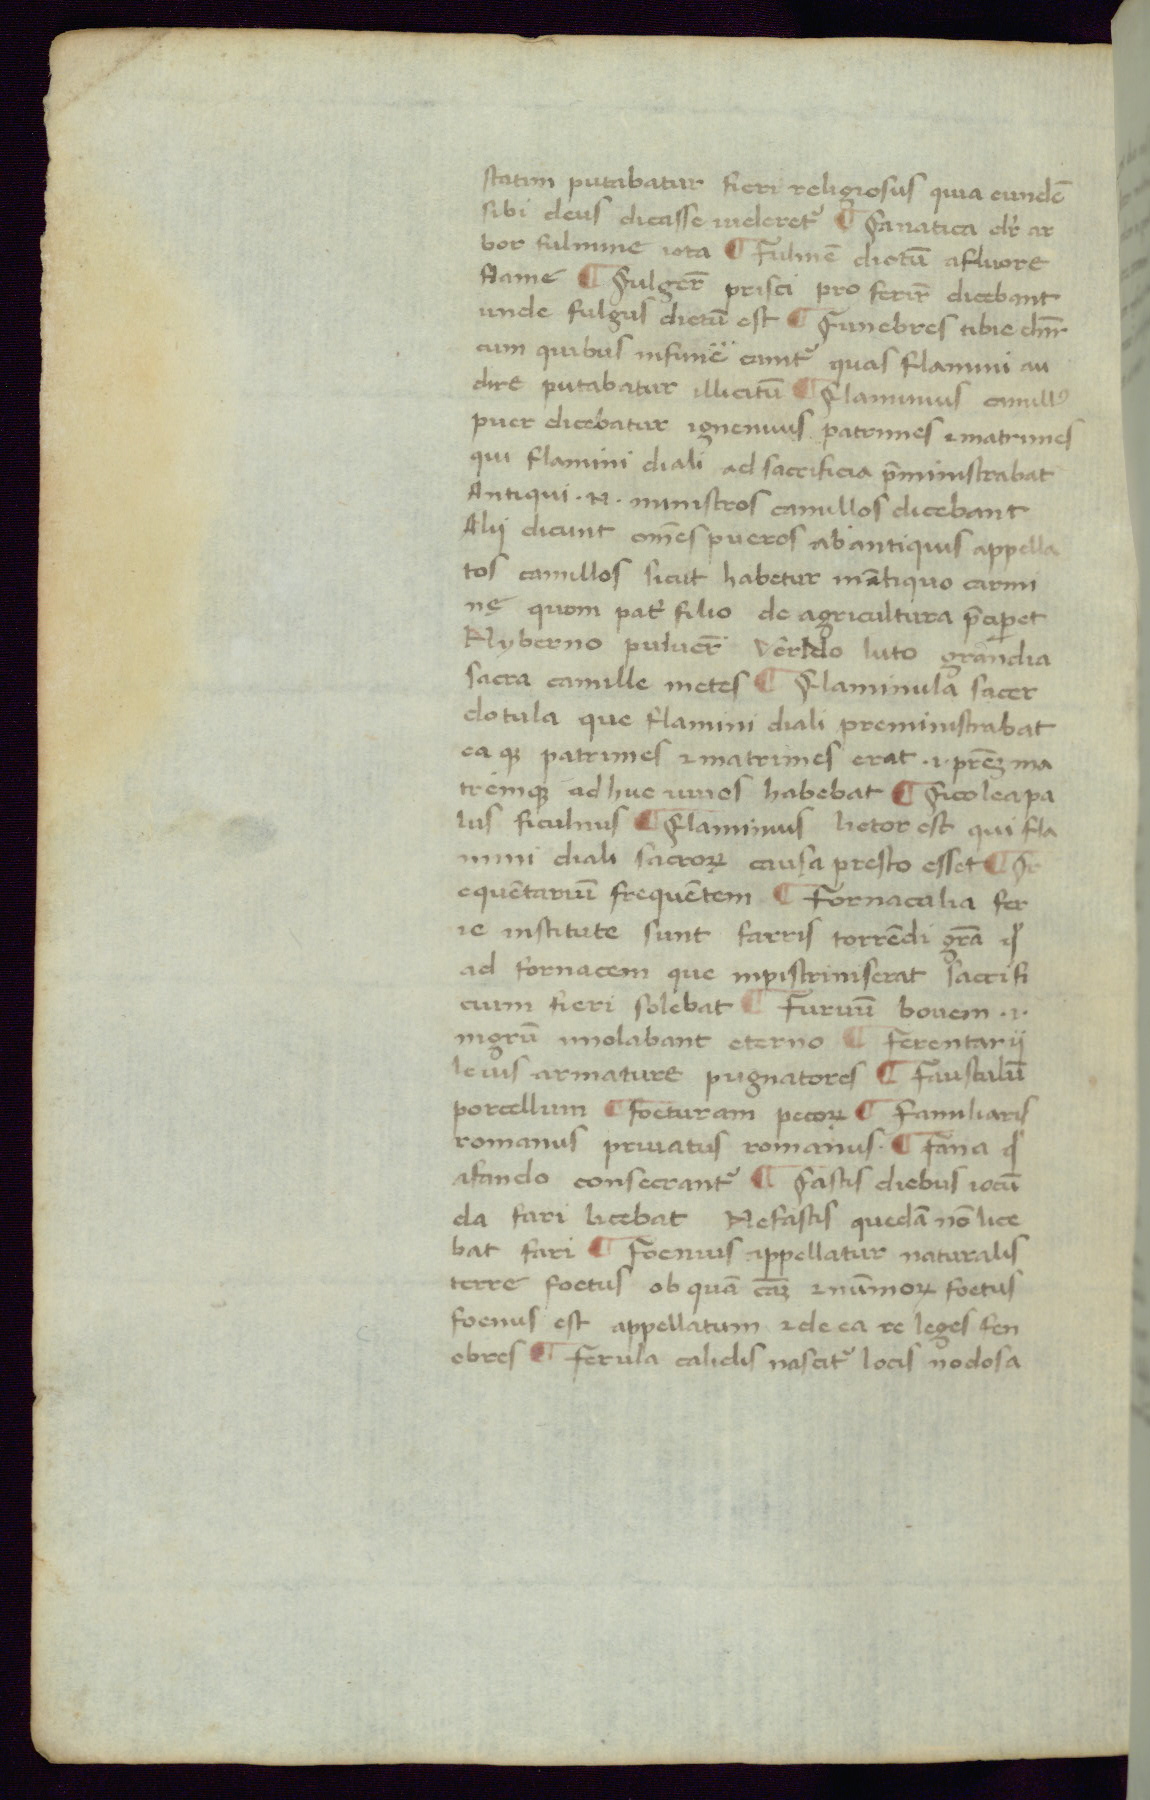 statim putabatur fieri religiosus quia eundē
sibi deus dicasse uideret᷑ ¶ Fanatica dr̄ ar
bor fulmine icta ¶ Fulmē dictū a fluore
flame ¶ Fulger̄ prisci pro ferir̄ dicebant
unde fulgus dictū est ¶ Funebres tibie dn̄r
cum quibus in funē canit᷑ quas flamini au
dire putabatur illicitū ¶ Flaminius camillꝰ
puer dicebatur ignenuus patrimes ⁊ matrimes
qui flamini diali ad sacrificia p̄ministrabat
Antiqui · N · ministros camillos dicebant
Alij dicunt om̄es pueros ab antiquis appella
tos camillos sicut habetur in ātiquo carmi
ne quom pat̉ filio de agricultura p̄ciperet
Hyberno puluer̄ Verno luto grandia
sacra camille metes ¶ Flaminula sacer
dotula que flamini diali preministrabat
ea qꝫ patrimes ⁊ matrimes erat · i · pr̄eꝫ ma
tremqꝫ ad huc uiuos habebat ¶ Ficolea pa
lus ficulnus ¶ Flaminius lictor est qui fla
mini diali sacroꝝ causa presto esset ¶ Fr
equētariū frequētem ¶ Fornacalia fer
ie institute sunt farris torrēdi grā ꝙ
ad fornacem que in pistrinis erat sacrifi
cium fieri solebat ¶ Furuū bouem · i ·
nigrū imolabant eterno ¶ Ferentarij
leuis armature pugnatores ¶ Faustulū
porcellum ¶ foeturam pecoꝝ ¶ Familiaris
romanus priuatus romanus · ¶ Fana ꝙ
a fando consecrant᷑ ¶ Fastis diebus iocū
da fari licebat Nefastis quedā nō lice
bat fari ¶ Foenus appellatur naturalis
terre foetus ob quā cāꝫ ⁊ nūmoꝝ foetus
foenus est appellatum ⁊ de ea re leges fen
ebres ¶ Ferula calidis nascit᷑ locis nodosa